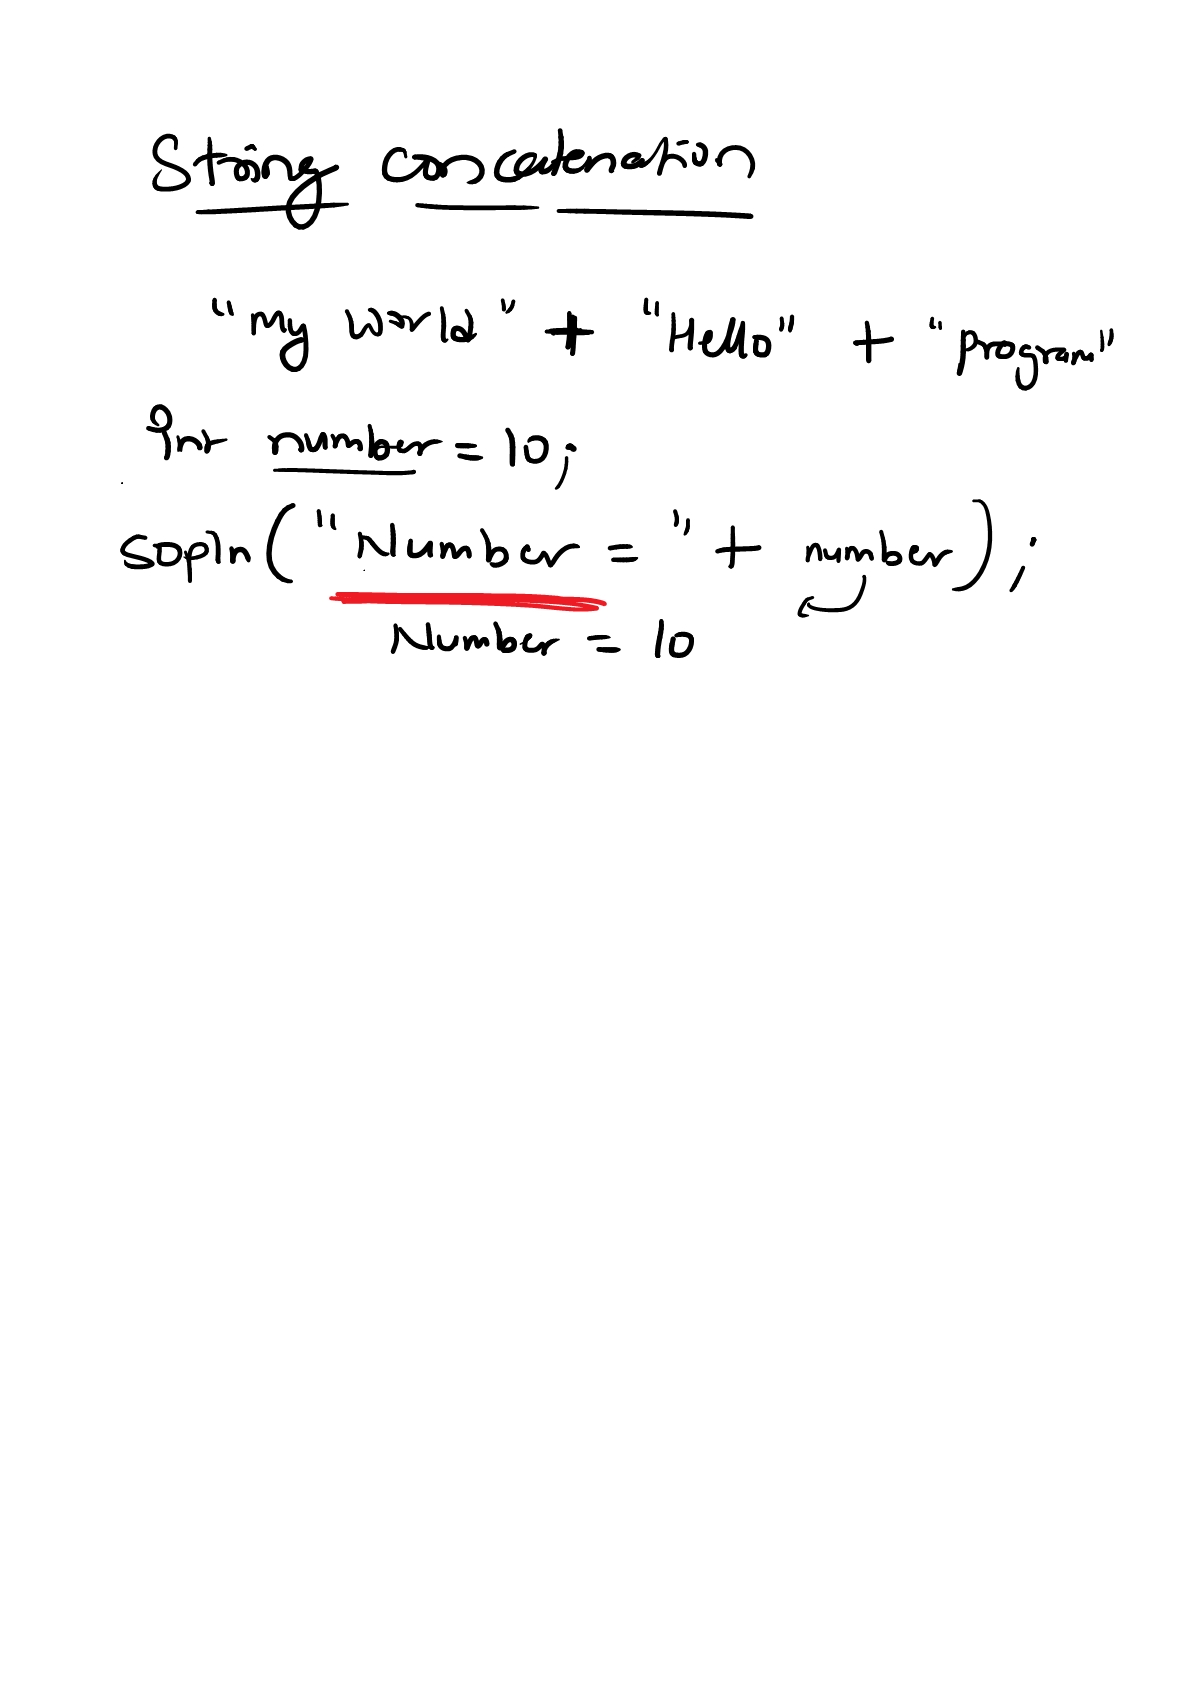 String concatenation
"My world" + "Hello" + "program"
int number = 10;
sopln("Number = " + number);
Number = 10